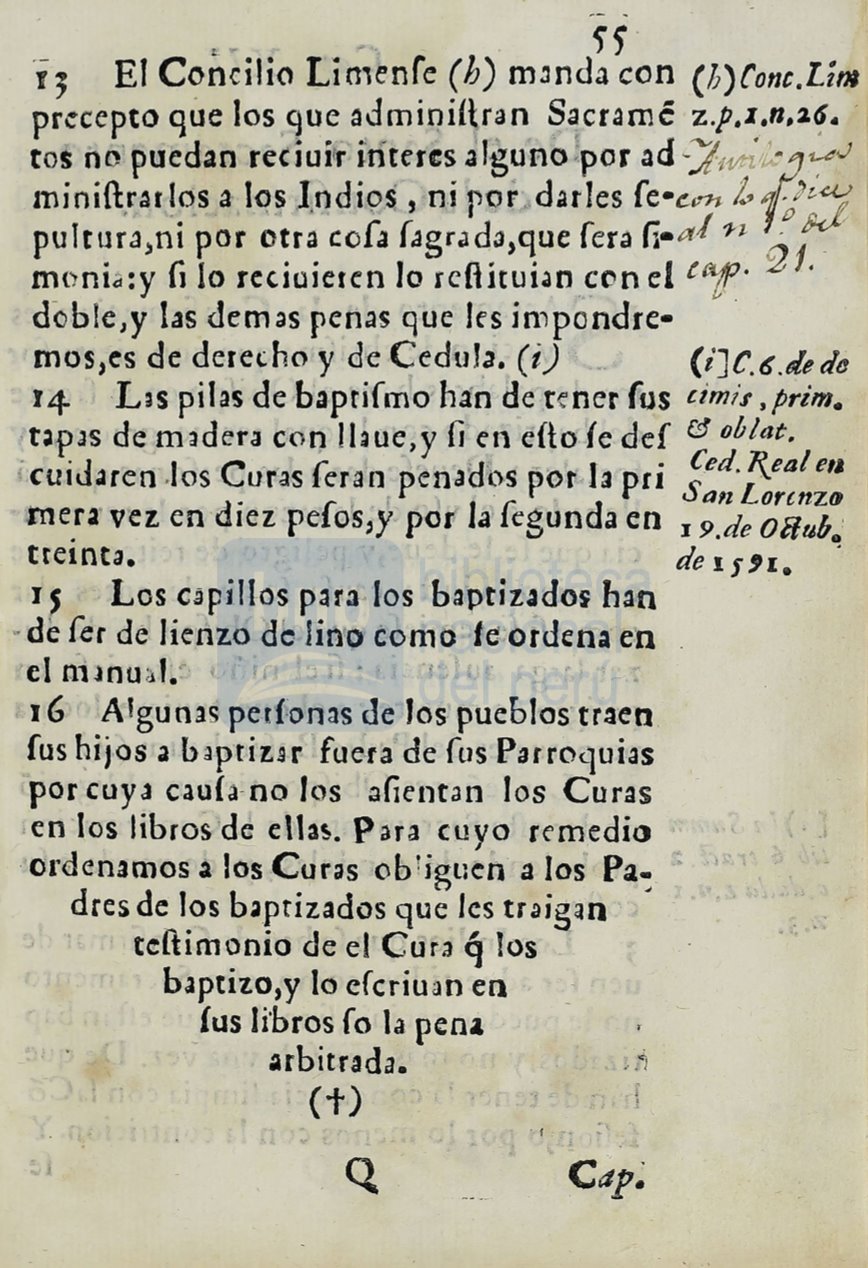 55
13 El Concilio Limenſe (h) manda con
precepto que los que adminiſtran Sacramẽ
tos no puedan reciuir interes alguno por ad
miniſtrarlos a los Indios, ni por darles ſe-
pultura, ni por otra coſa ſagrada, que ſera ſi-
monia: y ſi lo reciuieren lo reſtituian con el
doble, y las demas penas que les impondre-
mos, es de derecho y de Cedula. (i)
14 Las pilas de baptiſmo han de tener ſus
tapas de madera con llaue, y ſi en eſto ſe deſ
cuidaren los Curas ſeran penados por la pri
mera vez en diez peſos, y por la ſegunda en
treinta.
15 Los capillos para los baptizados han
de ſer de lienzo de lino como ſe ordena en
el manual.
16 Algunas perſonas de los pueblos traen
ſus hijos a baptizar fuera de ſus Parroquias
por cuya cauſa no los aſientan los Curas
en los libros de ellas. Para cuyo remedio
ordenamos a los Curas obliguen a los Pa-
dres de los baptizados que les traigan
teſtimonio de el Cura q̃ los
baptizo, y lo eſcriuan en
ſus libros ſo la pena
arbitrada.
(†)
Q Cap.
(h) Conc. Lim
2.p.1.n.26.
con lo
al n 1º del
cap. 21.
(i] C.6.de de
cimis, prim.
& oblat.
Ced. Real en
San Lorenzo
19.de Octub.
de 1591.
biblioteca
del perú